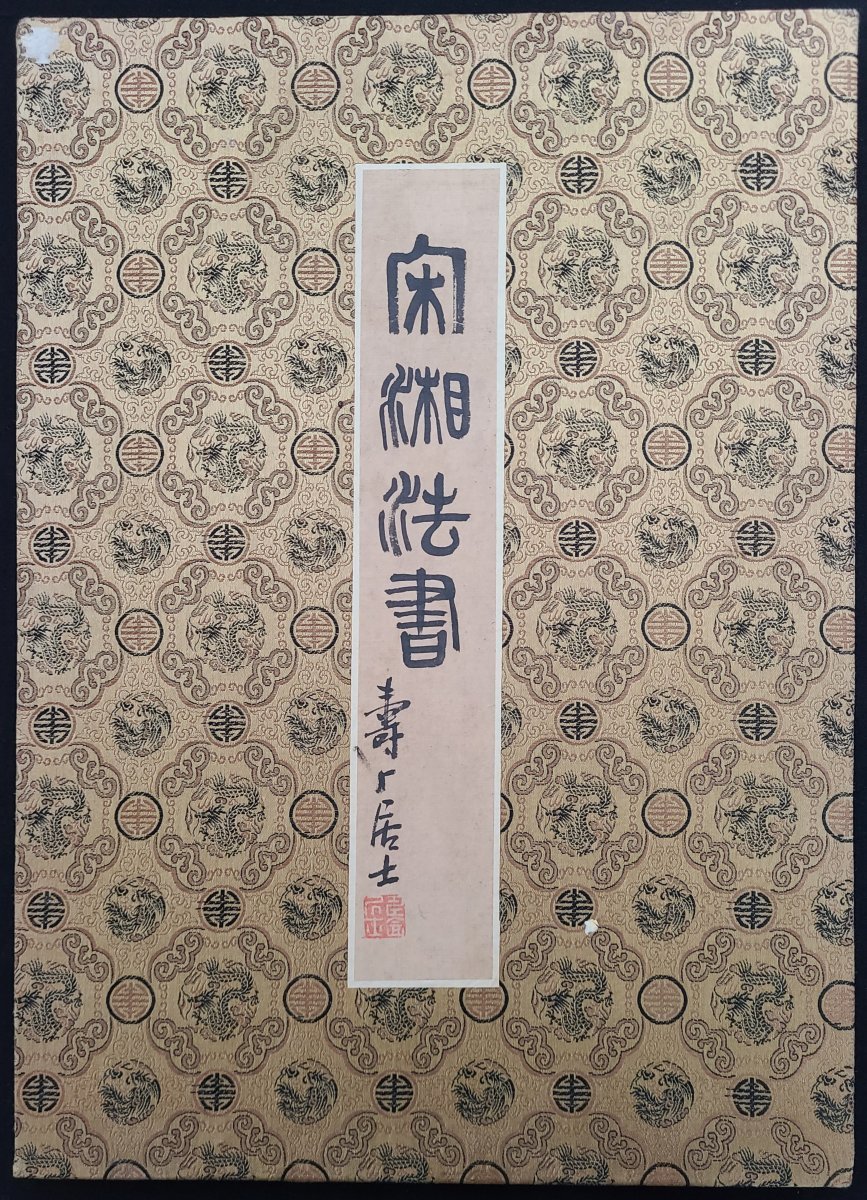 宋湘法書
壽人居士